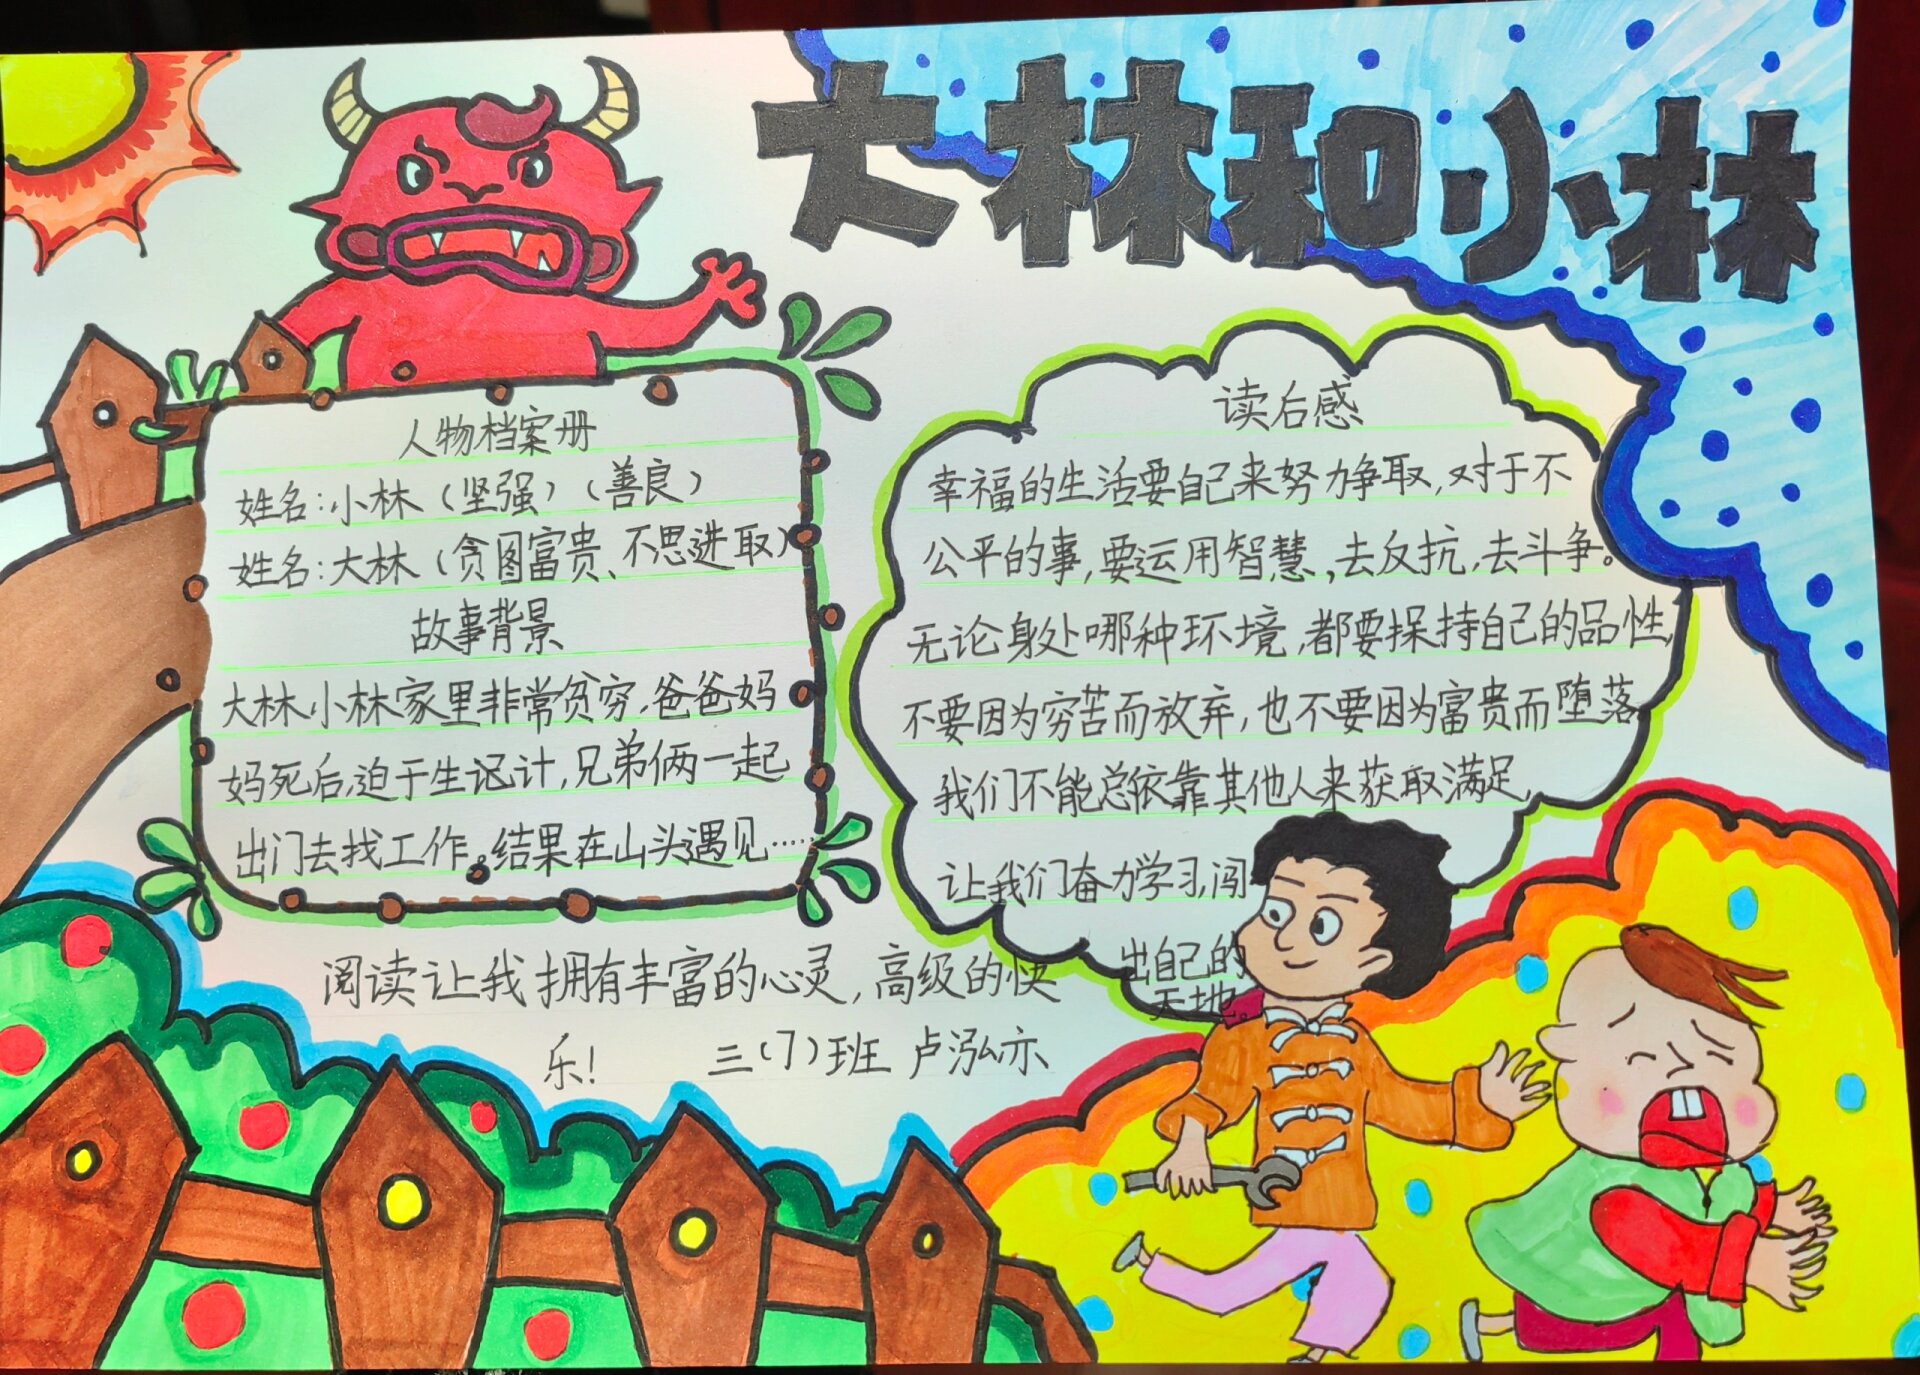 大林和小林
人物档案册
姓名:小林(坚强)(善良)
姓名:大林(贪图富贵、不思进取)
故事背景
大林小林家里非常贫穷,爸爸妈
妈死后,迫于生记计,兄弟俩一起
出门去找工作。结果在山头遇见……
读后感
幸福的生活要自己来努力争取,对于不
公平的事,要运用智慧,去反抗,去斗争。
无论身处哪种环境,都要保持自己的品性,
不要因为穷苦而放弃,也不要因为富贵而堕落
我们不能总依靠其他人来获取满足,
让我们奋力学习,闯
出自己的
天地。
阅读让我拥有丰富的心灵,高级的快
乐!
三(7)班 卢泓亦